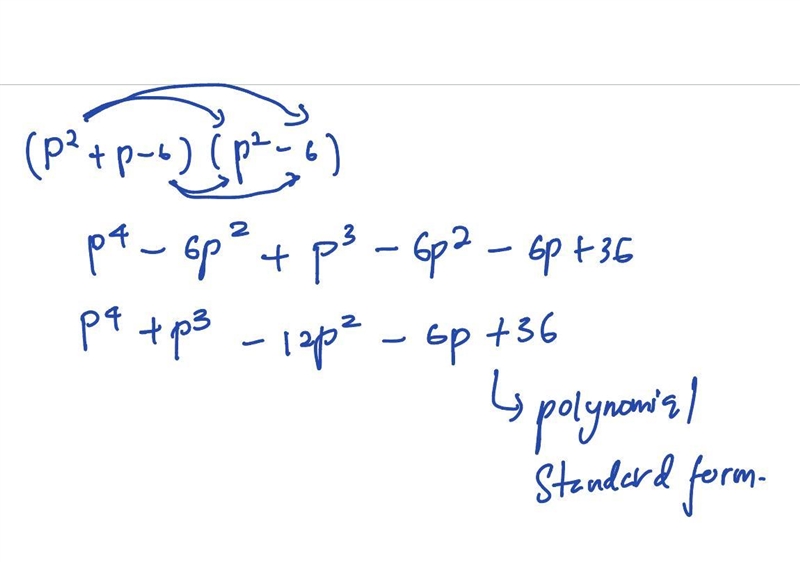 (p² + p - 6) (p² - 6)
p⁴ - 6p² + p³ - 6p² - 6p + 36
p⁴ + p³ - 12p² - 6p + 36
↳ polynomial
Standard form.